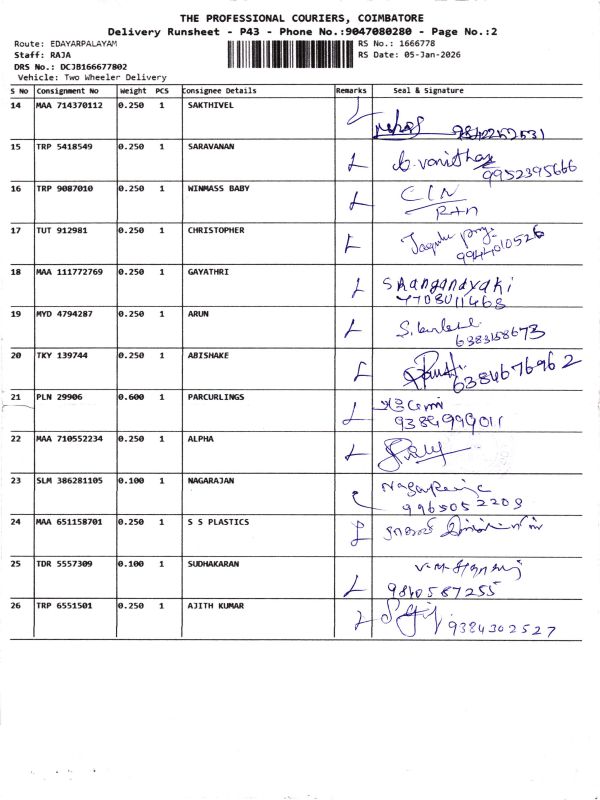 THE PROFESSIONAL COURIERS, COIMBATORE
Delivery Runsheet - P43 - Phone No.:9047080280 - Page No.:2
Route: EDAYARPALAYAM
RS No.: 1666778
Staff: RAJA
RS Date: 05-Jan-2026
DRS No.: DCJB166677802
Vehicle: Two Wheeler Delivery
S No Consignment No Weight PCS Consignee Details Remarks Seal & Signature
14 MAA 714370112 0.250 1 SAKTHIVEL
15 TRP 5418549 0.250 1 SARAVANAN
9952395666
16 TRP 9087010 0.250 1 WINMASS BABY
17 TUT 912981 0.250 1 CHRISTOPHER
9944010526
18 MAA 111772769 0.250 1 GAYATHRI
7708011468
19 MYD 4794287 0.250 1 ARUN
6383158673
20 TKY 139744 0.250 1 ABISHAKE
6384676962
21 PLN 29906 0.600 1 PARCURLINGS
9384999011
22 MAA 710552234 0.250 1 ALPHA
23 SLM 386281105 0.100 1 NAGARAJAN
9965052209
24 MAA 651158701 0.250 1 S S PLASTICS
25 TDR 5557309 0.100 1 SUDHAKARAN
9840587255
26 TRP 6551501 0.250 1 AJITH KUMAR
9384302527